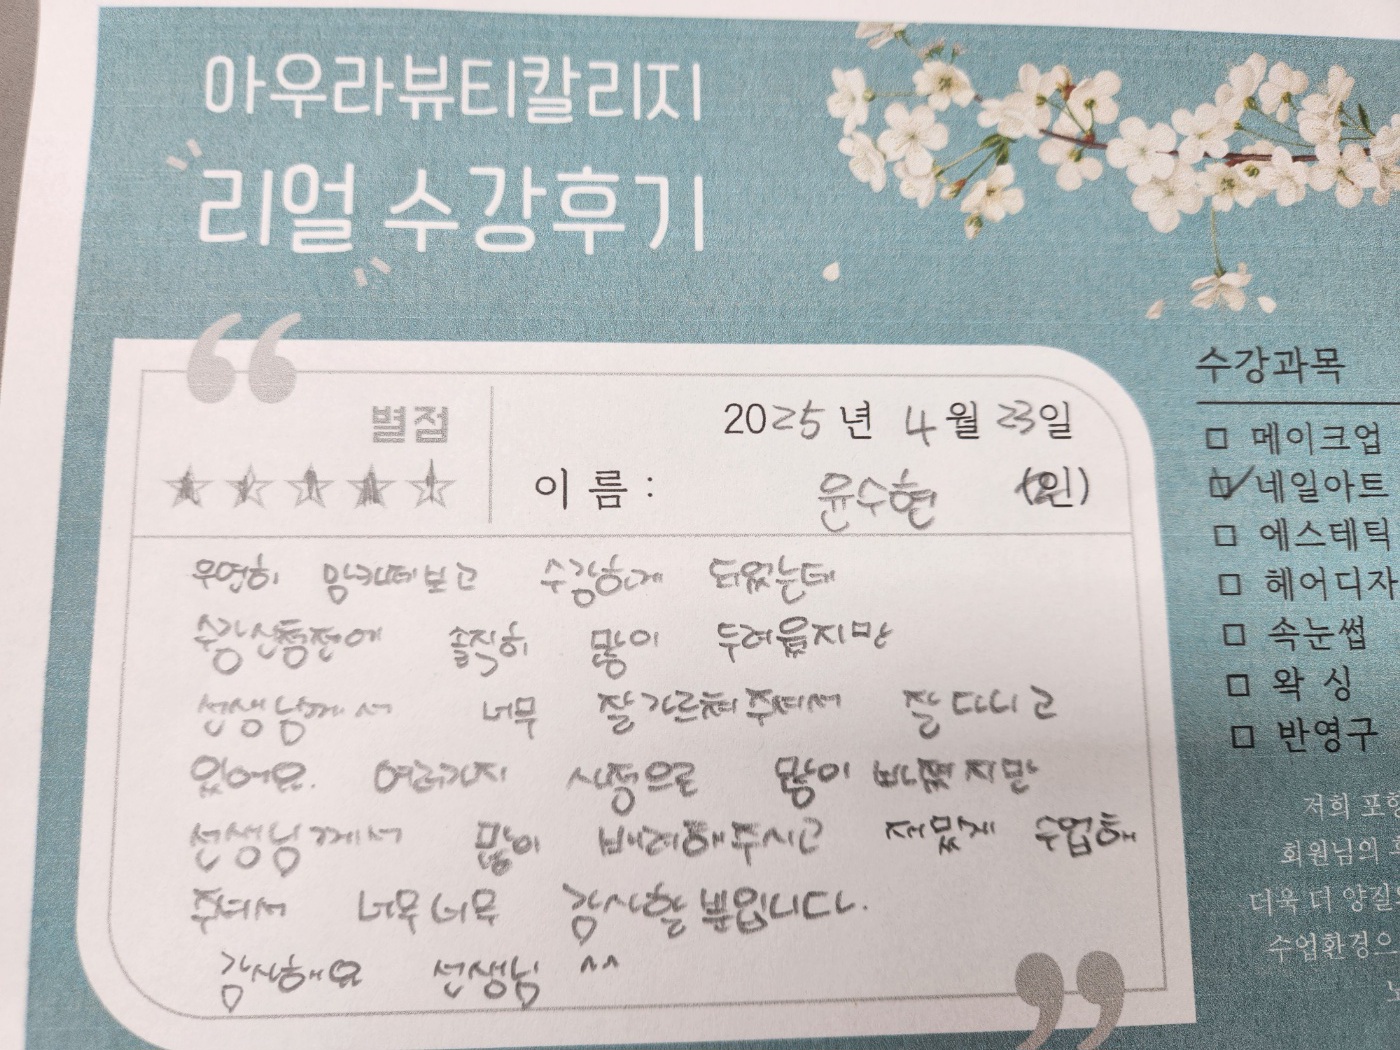 아우라뷰티칼리지
리얼 수강후기
별점
2025년 4월 23일
이 름 : 윤수현 (인)
우연히 맘카페보고 수강하게 되었는데
수강신청전에 솔직히 많이 두려웠지만
선생님께서 너무 잘가르쳐주셔서 잘다니고
있어요. 여러가지 사정으로 많이 바빴지만
선생님께서 많이 배려해주시고 재밌게 수업해
주셔서 너무너무 감사할 뿐입니다.
감사해요 선생님 ^^
수강과목
메이크업
네일아트
에스테틱
헤어디자
속눈썹
왁싱
반영구
저희 포함
회원님의
더욱 더 양질
수업환경으